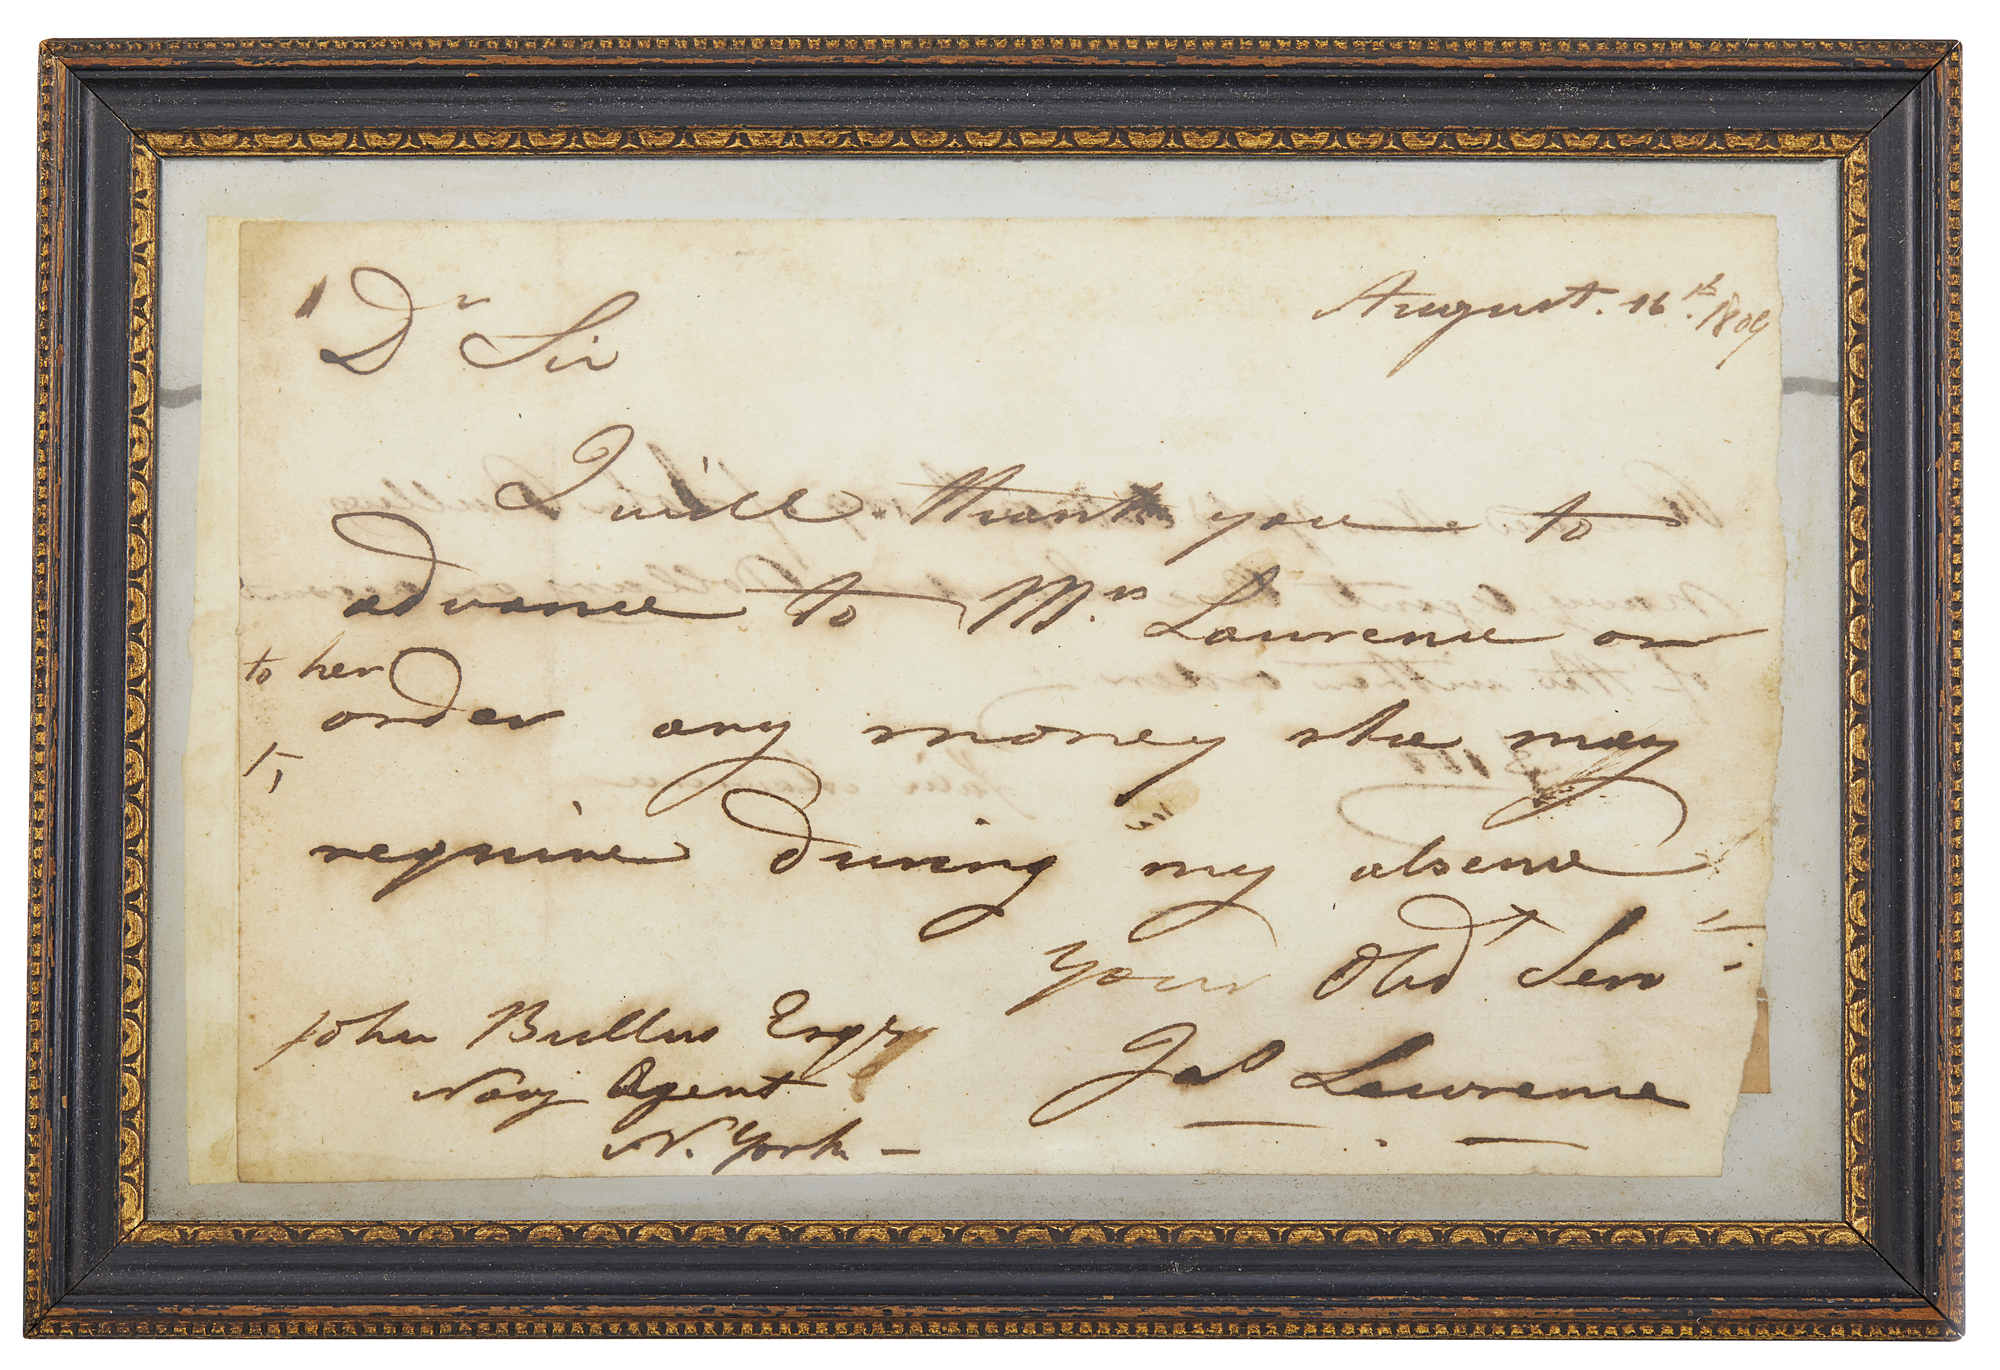 August. 16th. 1809
Dr Sir
I will thank you to
advance to Mrs Lawrence or
to her
order any money she may
require during my absence
Your Obdt Serv
John Bullus Esqr
Navy Agent
N. York —
Jas Lawrence